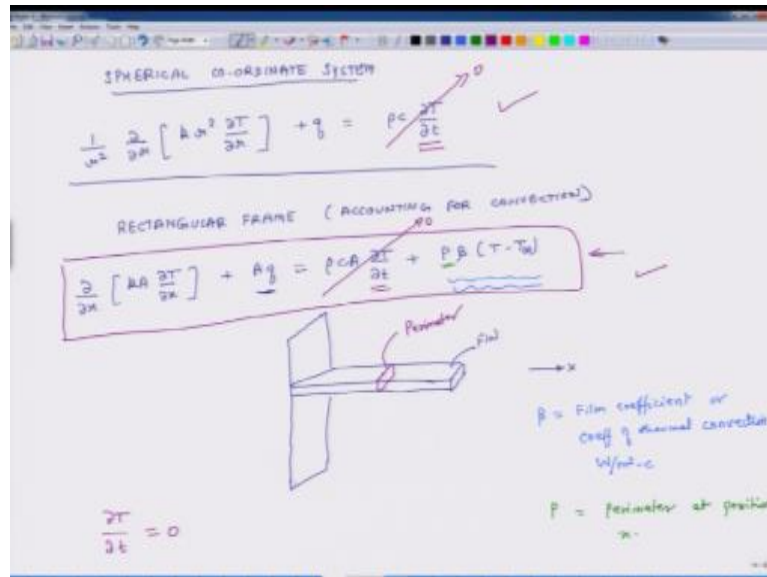 SPHERICAL CO-ORDINATE SYSTEM
1/r² ∂/∂r [ k r² ∂T/∂r ] + q = ρc ∂T/∂t 0
RECTANGULAR FRAME (ACCOUNTING FOR CONVECTION)
∂/∂x [ kA ∂T/∂x ] + Aq = ρcA ∂T/∂t 0 + Pβ (T - T∞)
Perimeter
Fin
x
β = Film coefficient or
coeff of thermal convection
W/m²-c
P = Perimeter at position
x.
∂T/∂t = 0